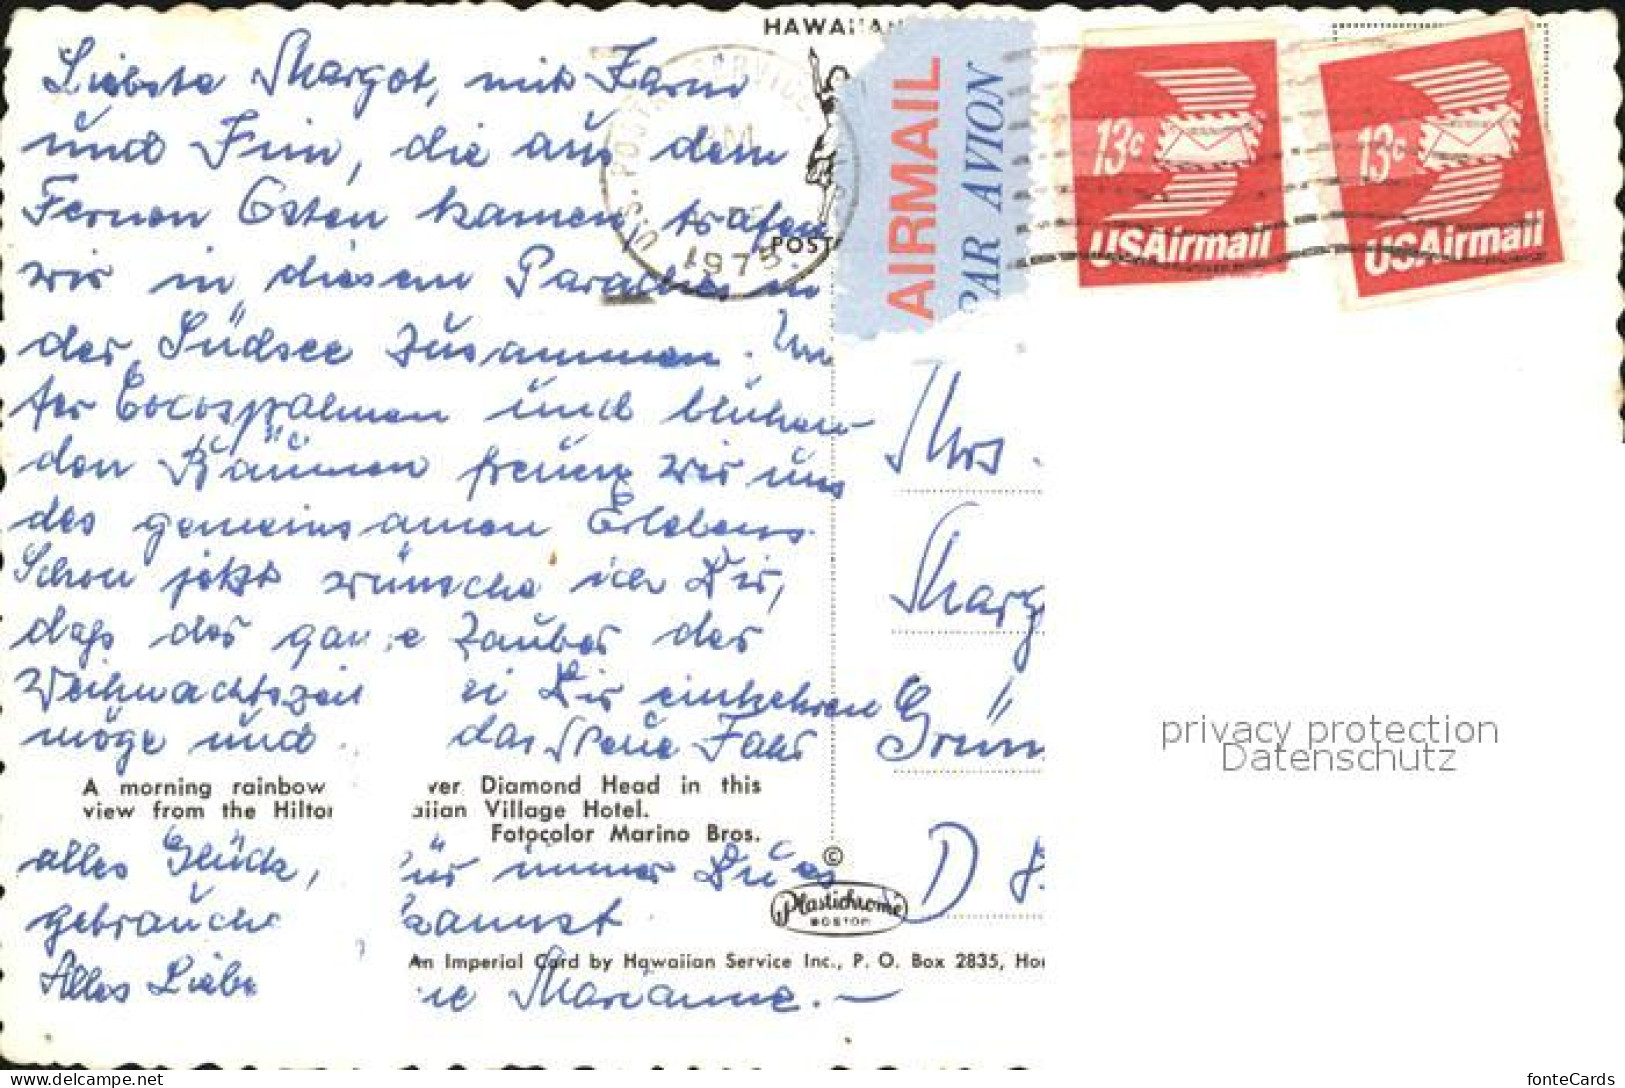 HAWAIIAN
Liebste Margot, mit
und die aus dem
Fernen Osten kamen, trafen
wir in diesem Paradies in
der Südsee zusammen. Un
ter Cocospalmen und blühen
den Bäumen freuen wir uns
des gemeinsamen Erlebens.
Schon jetzt wünsche ich Dir,
daß der Zauber der
Weihnachtszeit ei Dir einkehren
möge und das Neue Jahr
A morning rainbow ver Diamond Head in this
view from the Hilton aiian Village Hotel.
Fotocolor Marino Bros.
alles Glück, ür immer Du es
gebrauche kannst
Alles Liebe
ne Marianne.
U.S. POSTAL SERVICE
1975
POST
AIRMAIL
PAR AVION
13c
USAirmail
13c
USAirmail
Mrs.
Marg
Grün
D 8
©
Plastichrome
BOSTON
An Imperial Card by Hawaiian Service Inc., P. O. Box 2835, Hon
privacy protection
Datenschutz
www.delcampe.net
fonteCards